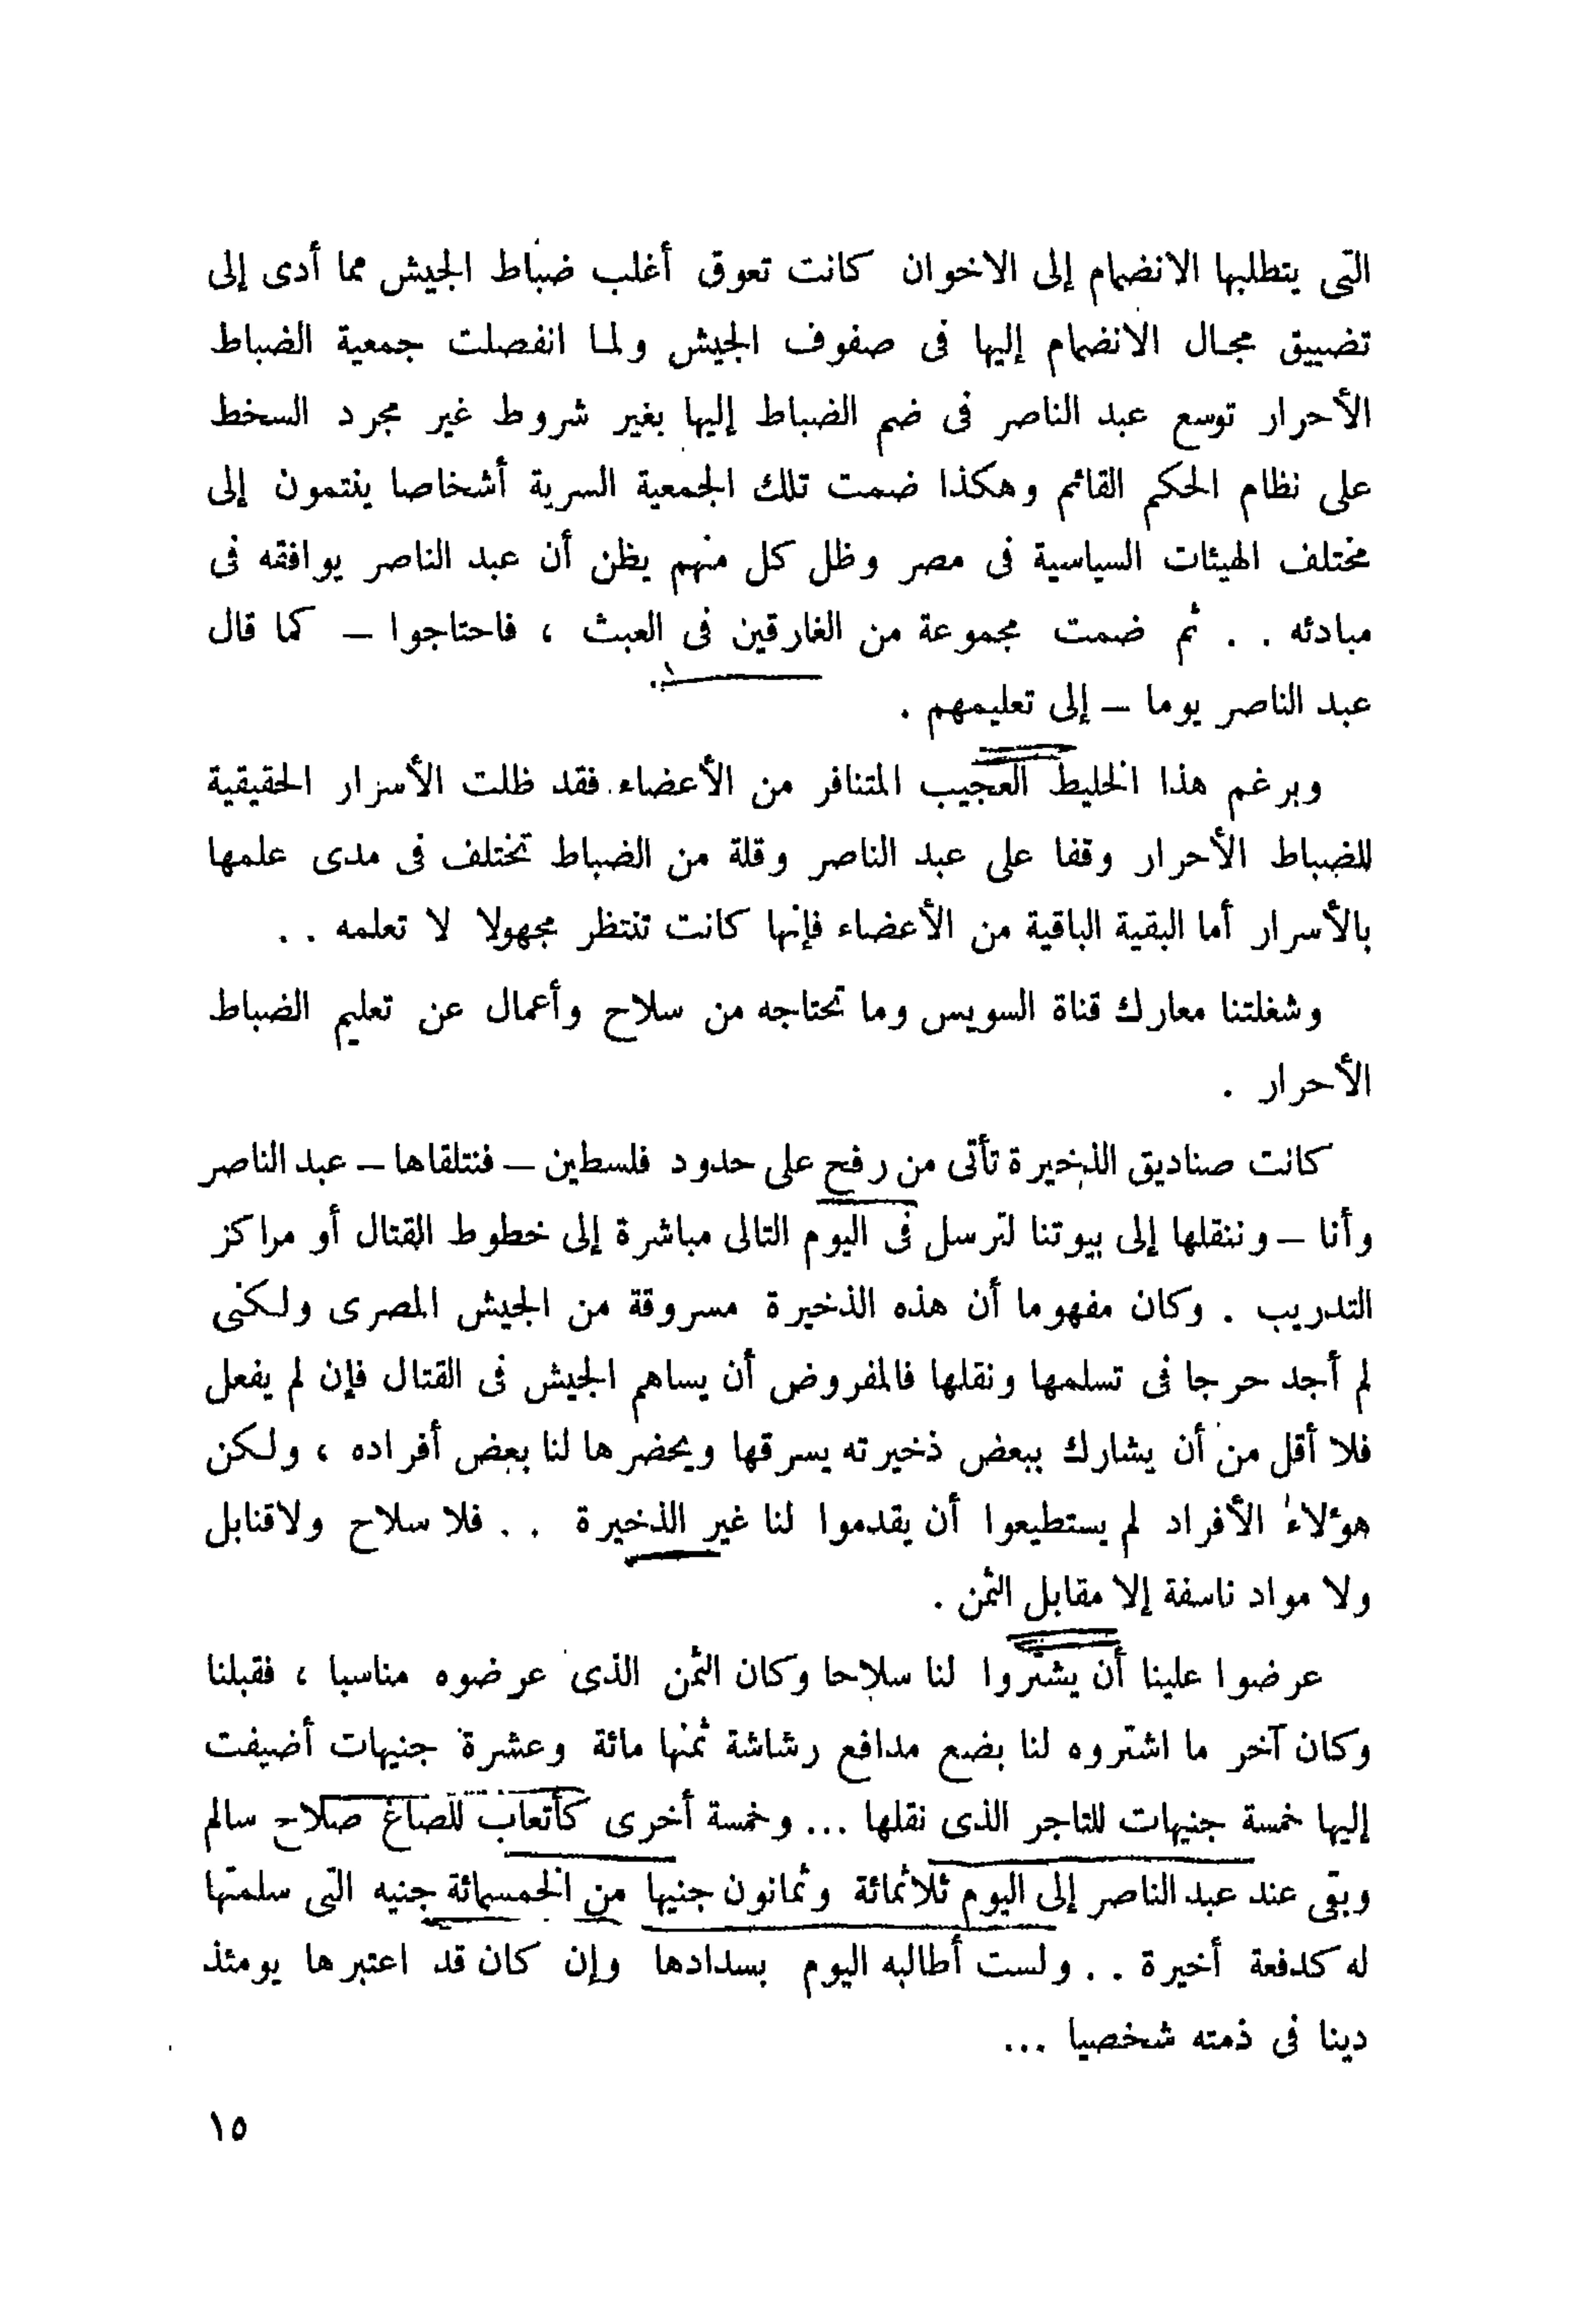 التى يتطلبها الانضمام إلى الاخوان كانت تعوق أغلب ضباط الجيش مما أدى إلى
تضييق مجال الانضمام إليها فى صفوف الجيش ولما انفصلت جمعية الضباط
الأحرار توسع عبد الناصر فى ضم الضباط إليها بغير شروط غير مجرد السخط
على نظام الحكم القائم وهكذا ضمت تلك الجمعية السرية أشخاصا ينتمون إلى
مختلف الهيئات السياسية فى مصر وظل كل منهم يظن أن عبد الناصر يوافقه فى
مبادئه . . ثم ضمت مجموعة من الغارقين فى العبث ، فاحتاجوا – كما قال
عبد الناصر يوما – إلى تعليمهم .
وبرغم هذا الخليط العجيب المتنافر من الأعضاء فقد ظلت الأسرار الحقيقية
للضباط الأحرار وقفا على عبد الناصر وقلة من الضباط تختلف فى مدى علمها
بالأسرار أما البقية الباقية من الأعضاء فإنها كانت تنتظر مجهولا لا تعلمه . .
وشغلتنا معارك قناة السويس وما تحتاجه من سلاح وأعمال عن تعليم الضباط
الأحرار .
كانت صناديق الذخيرة تأتى من رفح على حدود فلسطين – فنتلقاها – عبد الناصر
وأنا – وننقلها إلى بيوتنا لترسل فى اليوم التالى مباشرة إلى خطوط القتال أو مراكز
التدريب . وكان مفهوما أن هذه الذخيرة مسروقة من الجيش المصرى ولكنى
لم أجد حرجا فى تسلمها ونقلها فالمفروض أن يساهم الجيش فى القتال فإن لم يفعل
فلا أقل من أن يشارك ببعض ذخيرته يسرقها ويحضرها لنا بعض أفراده ، ولكن
هؤلاء الأفراد لم يستطيعوا أن يقدموا لنا غير الذخيرة . . فلا سلاح ولاقنابل
ولا مواد ناسفة إلا مقابل الثمن .
عرضوا علينا أن يشتروا لنا سلاحا وكان الثمن الذى عرضوه مناسبا ، فقبلنا
وكان آخر ما اشتروه لنا بضع مدافع رشاشة ثمنها مائة وعشرة جنيهات أضيفت
إليها خمسة جنيهات للتاجر الذى نقلها ... وخمسة أخرى كأتعاب للصاغ صلاح سالم
وبقى عند عبد الناصر إلى اليوم ثلاثمائة وثمانون جنيها من الخمسمائة جنيه التى سلمتها
له كدفعة أخيرة . . ولست أطالبه اليوم بسدادها وإن كان قد اعتبرها يومئذ
دينا فى ذمته شخصيا ...
١٥